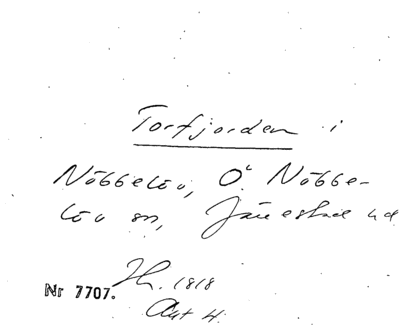 Torfjorden i
Nöbbelöv, Ö. Nöbbe-
löv sn, Järrestad hd
Nr 7707.
1818
Akt 4.